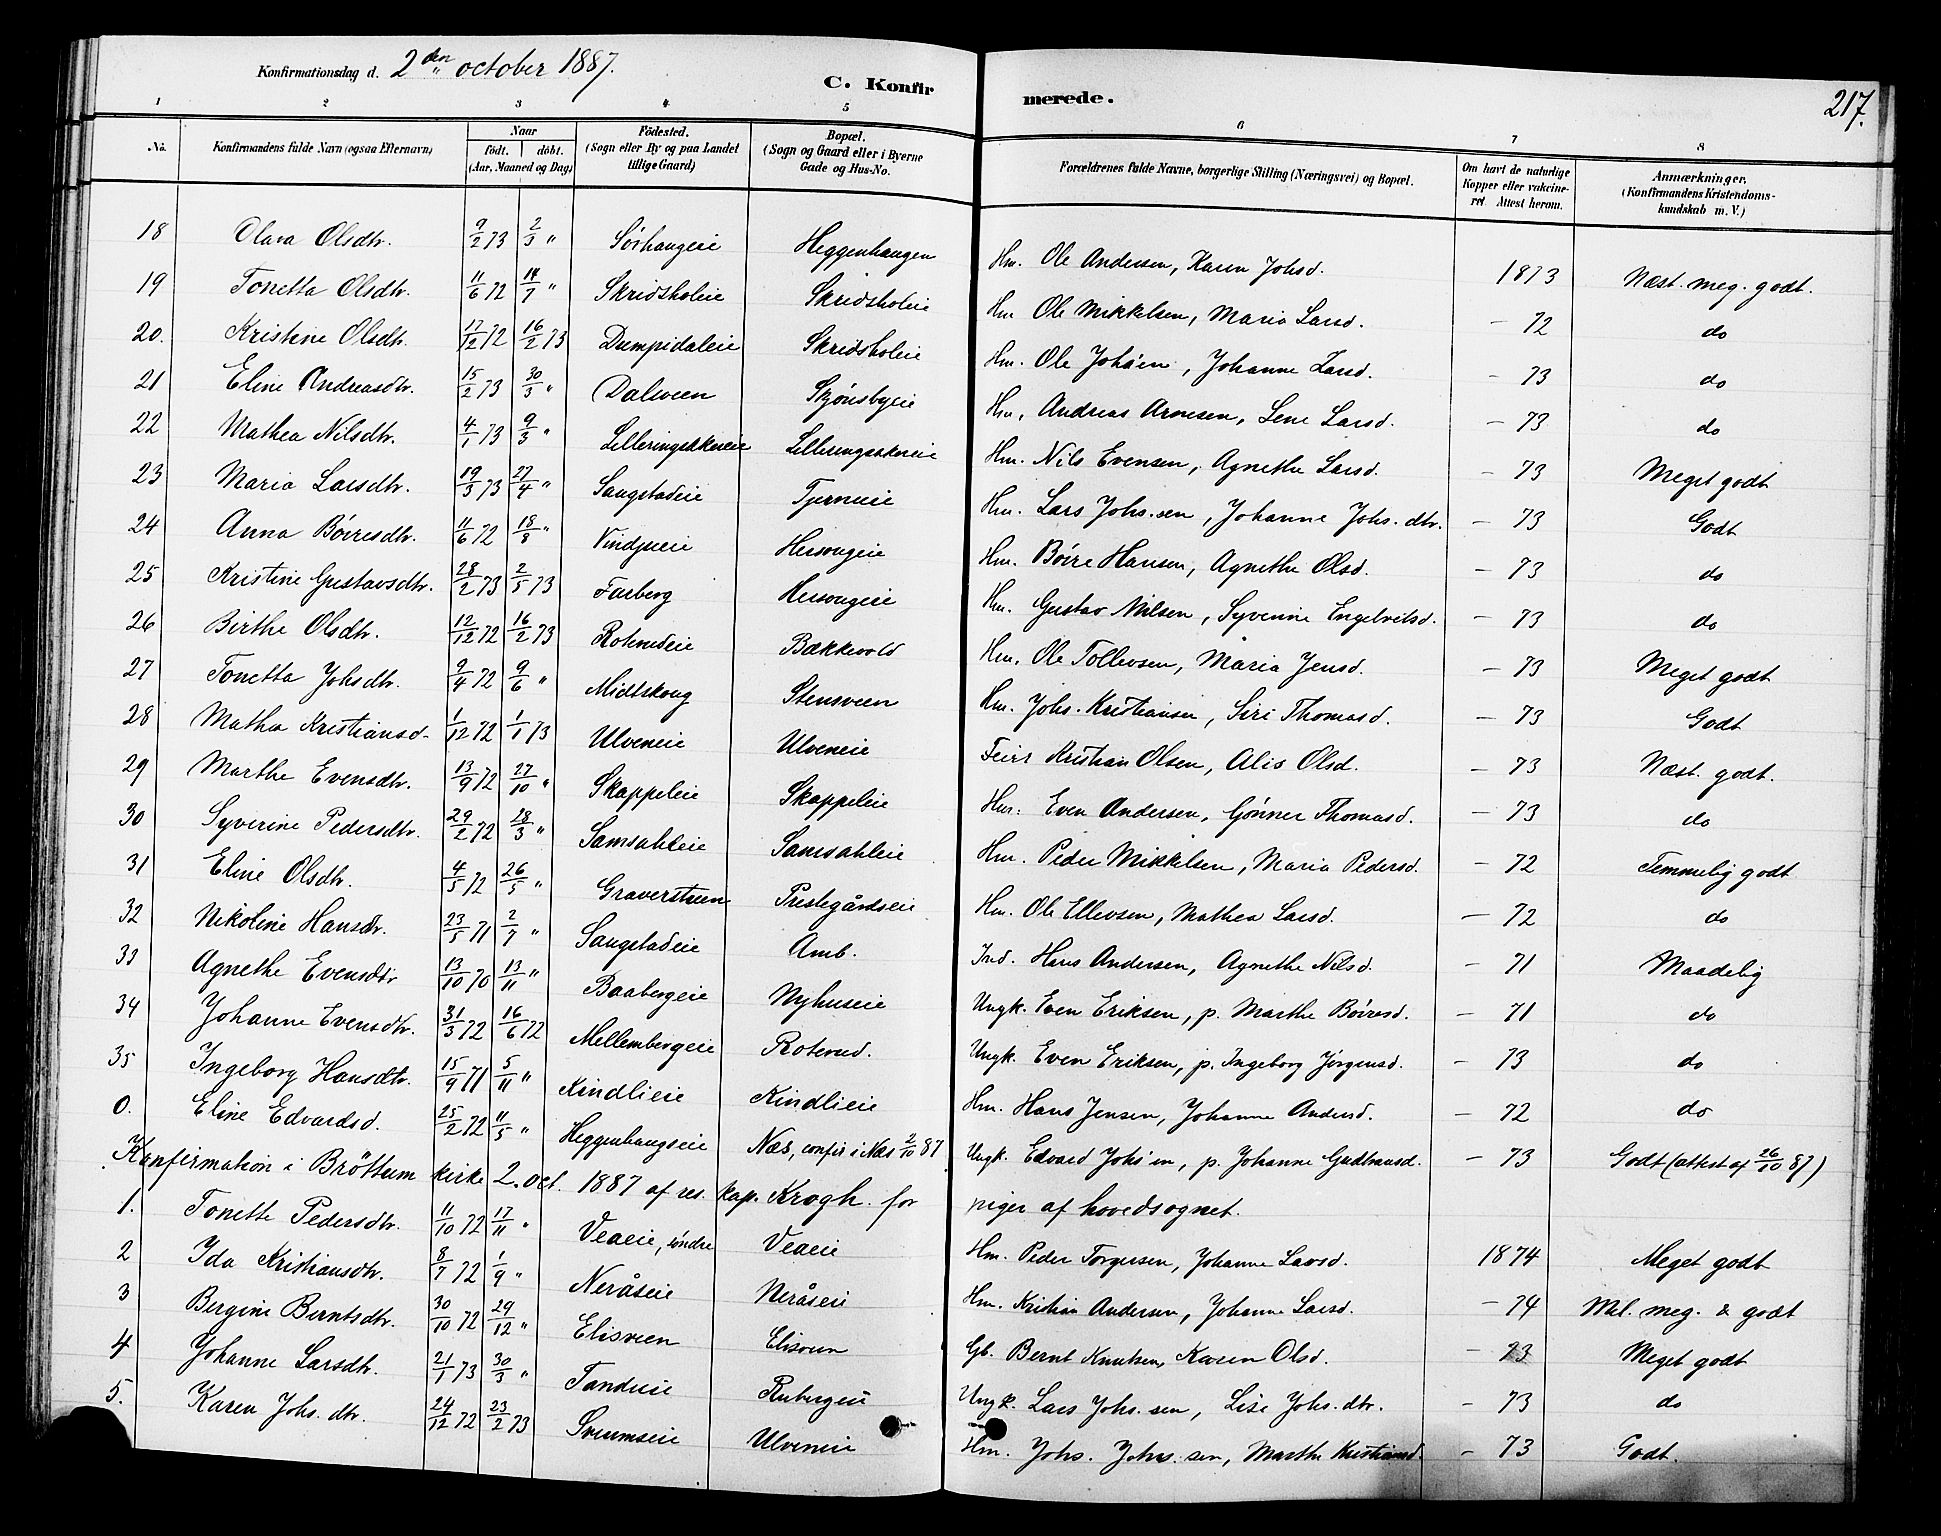 Konfirmationsdag d. 2den october 1887.
C. Konfirmerede.
217.
1 2 3 4 5 6 7 8
No. Konfirmandens fulde Navn (ogsaa Efternavn) Naar født. døbt. (Aar, Maaned og Dag) Födested. (Sogn eller By og paa Landet tillige Gaard) Bopæl. (Sogn og Gaard eller i Byerne Gade og Hus-No. Forældrenes fulde Navne, borgerlige Stilling (Næringsvei) og Bopæl. Om havt de naturlige Kopper eller vakcineret Attest herom. Anmærkninger. (Konfirmandens Kristendomskundskab m. V.)
18 Olava Olsdtr. 9/2 73 2/3 " Sörhaugeie Heggenhaugen Hm. Ole Andersen, Karen Johsd. 1873 Næst. meg. godt.
19 Tonetta Olsdtr. 11/6 72 14/7 " Skridsholeie Skridsholeie Hm Ole Mikkelsen, Maria Larsd. - 72 do
20. Kristine Olsdtr. 17/12 72 16/2 73 Dumpidaleie Skridsholeie Hm. Ole Johsen, Johanne Larsd. - 73 do
21 Eline Andreasdtr. 15/2 73 30/3 " Dalsveen Skjönsbyeie Hm. Andreas Arnesen, Lene Larsd. - 73 do
22 Mathea Nilsdtr. 4/1 73 9/3 " Lilleringsakereie Lilleringsakereie Hm. Nils Evensen, Agnethe Larsd. - 73 Meget godt
23 Maria Larsdtr. 19/3 73 27/4 " Saugstadeie Tjerneie Hm. Lars Johs.sen, Johanne Johs. dtr. - 73 Godt
24 Anna Böiresdtr. 11/6 72 18/8 " Vindjueie Hersougeie Hm. Böire Hansen, Agnethe Olsd. - 73 do
25 Kristine Gustavsdtr. 28/2 73 2/5 73 Farberg Hersougeie Hm. Gustav Nilsen, Syverine Engelvilsd. - 73 do
26 Birthe Olsdtr. 12/12 72 16/2 73 Rohnedeie Bækkevold Hm. Ole Tollevsen, Maria Jensd. - 73 Meget godt
27 Tonetta Johsdtr. 9/4 72 9/6 " Midtskoug Stensveen Hm. Johs. Kristiansen, Siri Thomasd. - 73 Godt
28 Mathea Kristiansd. 1/12 72 1/1 73 Ulveneie Ulveneie Feier Kristian Olsen, Alis Olsd. - 73 Næst. godt.
29 Marthe Evensdtr. 13/9 72 27/10 " Skappeleie Skappeleie Hm. Even Andersen, Gönner Thomasd. - 73 do
30 Syverine Pedersdtr. 29/2 72 28/3 " Samsahleie Samsahleie Hm. Peder Mikkelsen, Maria Pedersd. - 72 Temmelig godt
31 Eline Olsdtr. 4/5 72 26/5 " Graverstuen Prestegårdseie Hm. Ole Ellevsen, Mathea Larsd. - 72 do
32 Nikoline Hansdtr. 23/5 71 2/7 " Saugstadeie Amb. Ind. Hans Andersen, Agnethe Nilsd. - 71 Maadelig
33 Agnethe Evensdtr 13/10 70 13/11 " Baabergeie Nyhuseie Ungk. Even Eriksen, p. Marthe Böiresd. - 71 do
34 Johanne Evensdtr. 31/3 72 16/6 72 Mellembergeie Roterud. Ungk. Even Eriksen, p. Ingeborg Jörgensd. - 73 do
35 Ingeborg Hansdtr. 15/9 71 5/11 " Kindlieie Kindlieie Hm. Hans Jensen, Johanne Andersd. - 72 do
0. Eline Edvardsd. 25/2 72 11/5 " Heggenhaugseie Næs, confir. i Næs 2/10 87 Ungk. Edvard Johsen, p. Johanne Gudbransd. - 73 Godt (attest af 26/10 87)
Konfirmation i Bröttum kirke 2. oct. 1887 af res. kap. Krogh for piger af hovedsognet.
1. Tonette Pedersdtr. 11/10 72 17/11 " Veaeie, söndre Veaeie Hm. Peder Torgersen, Johanne Larsd. 1874 Meget godt
2 Ida Kristiansdtr. 8/7 72 1/9 " Neråseie Neråseie Hm. Kristian Andersen, Johanne Larsd. - 74 Mel. meg. & godt
3 Bergine Berntsdtr. 30/10 72 29/12 " Elisveen Elisveen Gb. Bernt Knutsen, Karen Olsd. - 73 Meget godt
4 Johanne Larsdtr. 21/1 73 30/3 " Tandeie Rubergeie Ungk. Lars Johs.sen, Lise Johs. dtr. - 73 do
5. Karen Johs. dtr. 24/12 72 23/2 73 Sveumseie Ulveneie Hm. Johs. Johs.sen, Marthe Kristiansd. - 73 Godt.